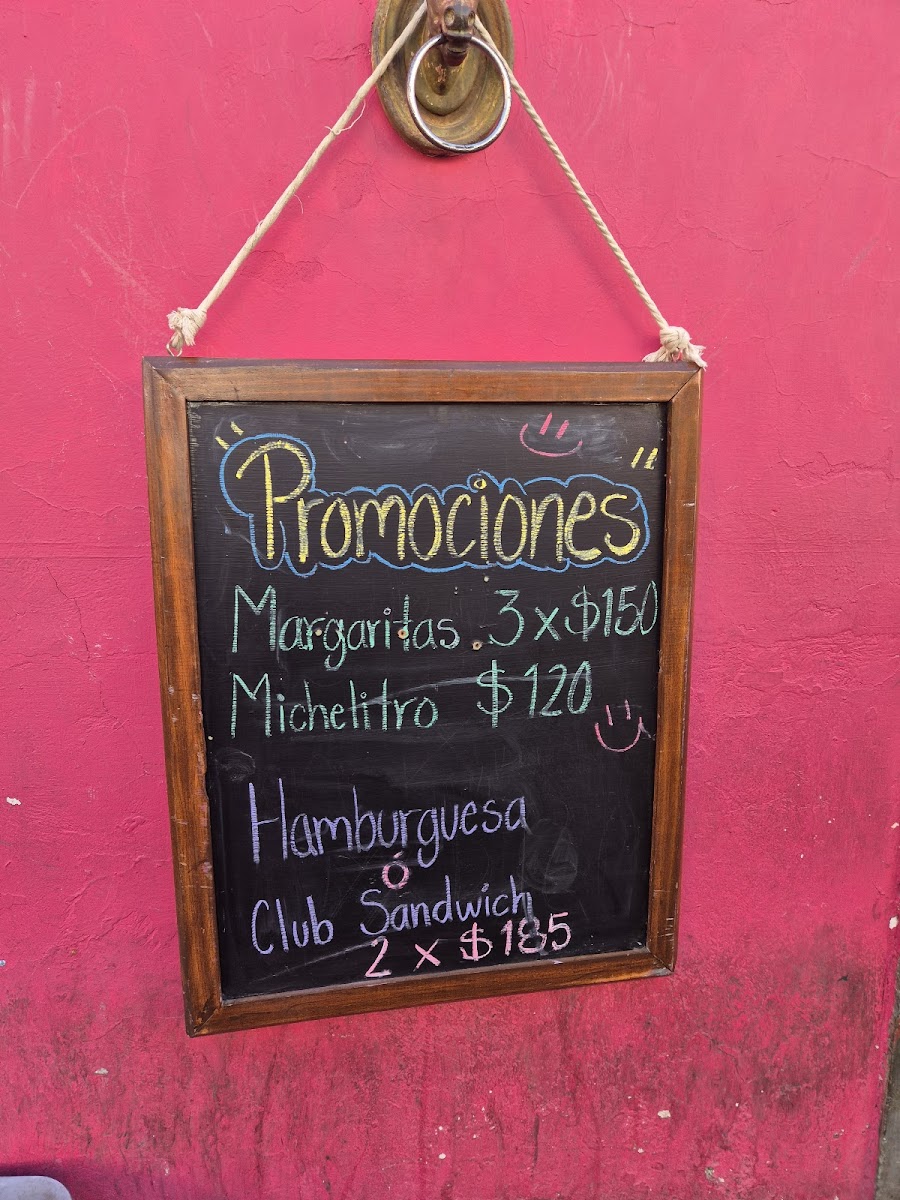 "Promociones"
Margaritas 3 x $150
Michelitro $120
Hamburguesa
ó
Club Sandwich
2 x $185